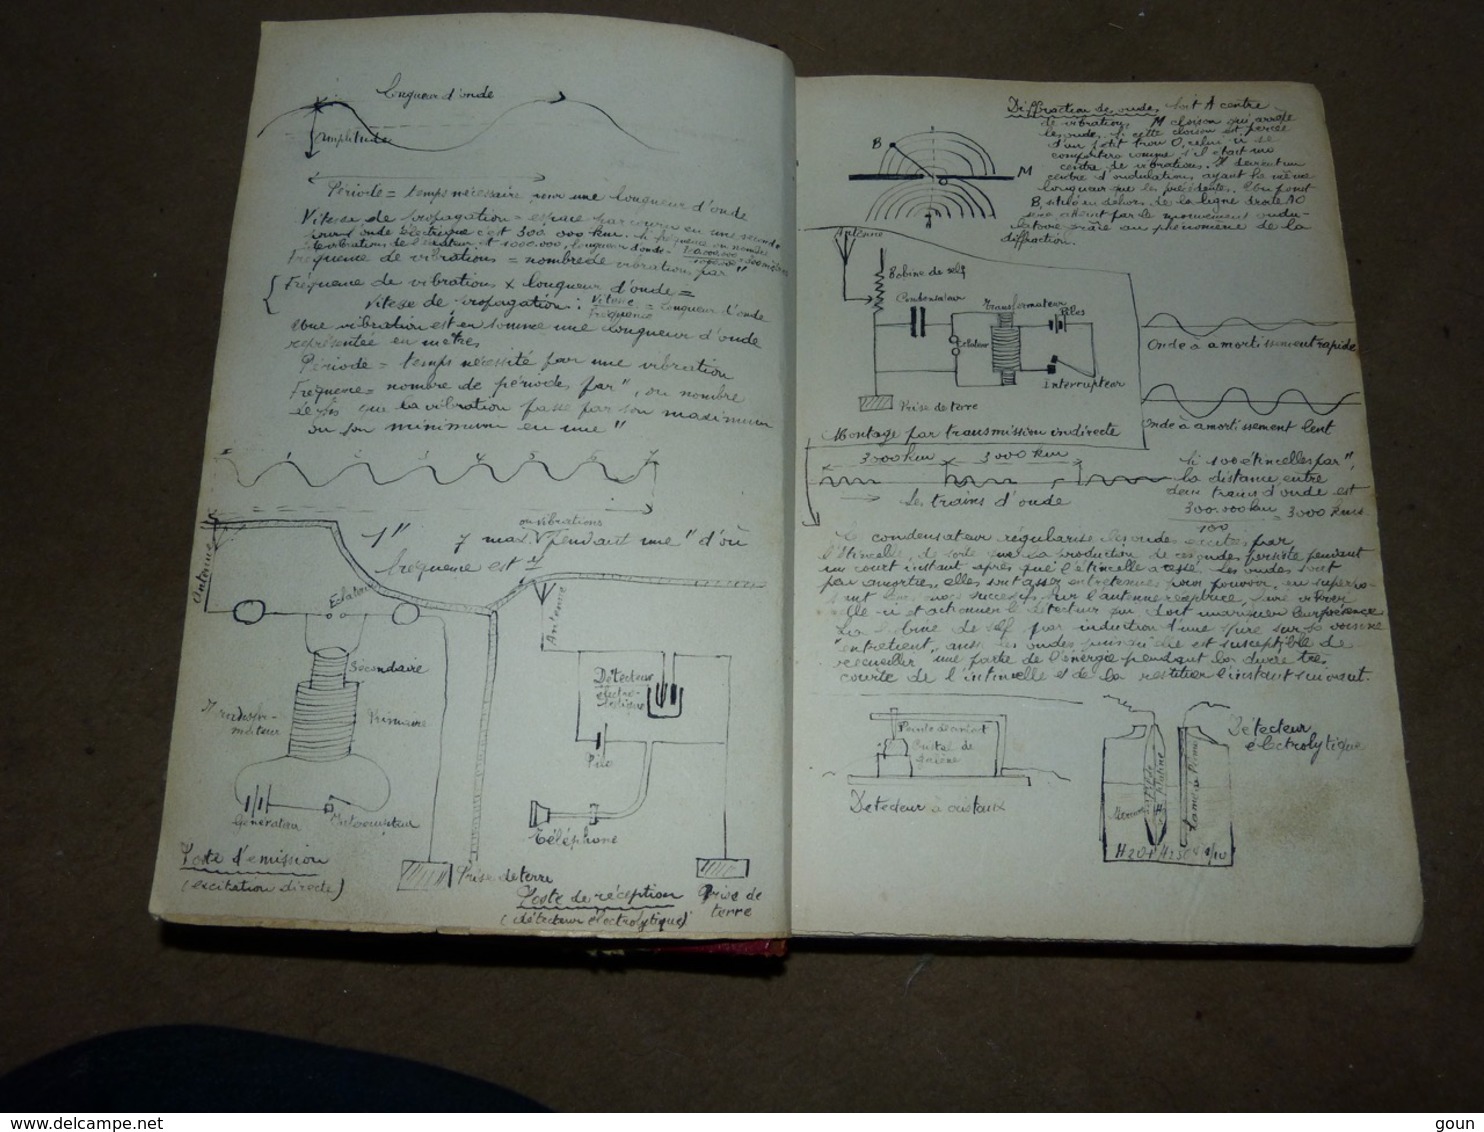 longueur d'onde
amplitude
Période = temps nécessaire pour une longueur d'onde
Vitesse de propagation = espace parcouru en une seconde
pour l'onde électrique c'est 300 000 km. Si fréquence ou nombre
de vibrations de l'excitateur est 1000.000, longueur d'onde =
Fréquence de vibrations = nombre de vibrations par "
Fréquence de vibrations x longueur d'onde =
Vitesse de propagation : Vitesse / Fréquence = longueur d'onde
Une vibration est en somme une longueur d'onde
représentée en mètres
Période = temps nécessité par une vibration
Fréquence = nombre de périodes par ", ou nombre
de fois que la vibration passe par son maximum
ou son minimum en une "
1 2 3 4 5 6 7
1"
ou vibrations
7 max. V pendant une " d'où
fréquence est 7
Antenne
Eclateur
Secondaire
Transfor-
mateur
Primaire
Générateur
Interrupteur
Poste d'émission
(excitation directe)
Prise de terre
Antenne
Détecteur
électro-
lytique
Pile
Téléphone
Poste de réception
(détecteur électrolytique)
Prise de
terre
Diffraction des ondes. Soit A centre
de vibrations, M cloison qui arrête
les ondes. Si cette cloison est percée
d'un petit trou O, celui-ci se
comportera comme s'il était un
centre de vibrations. Il devient un
centre d'ondulations, ayant la même
longueur que les précédentes. Un point
B, situé en dehors de la ligne droite AO
sera atteint par le mouvement ondu-
latoire grâce au phénomène de la
diffraction.
B
M
O
A
Antenne
Bobine de self
Condensateur
Transformateur
Piles
Eclateur
Interrupteur
Prise de terre
Montage par transmission indirecte
Onde à amortissement rapide
Onde à amortissement lent
3000 km 3000 km
Les trains d'onde
Si 100 étincelles par ",
la distance entre
deux trains d'onde est
300.000 km / 100 = 3000 kms.
Le condensateur régularise les ondes excitées par
l'étincelle, de sorte que la production de ces ondes persiste pendant
un court instant après que l'étincelle a cessé. Les ondes sont
peu amorties, elles sont assez entretenues pour pouvoir, en superpo-
sant leurs succès sur l'antenne réceptrice, faire vibrer
celle-ci et actionner le détecteur qui doit marquer leur présence
La bobine de self par induction d'une spire sur sa voisine
"entretient" aussi les ondes puisqu'elle est susceptible de
recueillir une partie de l'énergie pendant la durée très
courte de l'étincelle et de la restituer l'instant suivant.
Pointe d'argent
Cristal de
galène
Détecteur à cristaux
Détecteur
électrolytique
Mercure
Fil de Platine
Lame de Platine
H2O + H2SO4 1/10
www.delcampe.net
goun